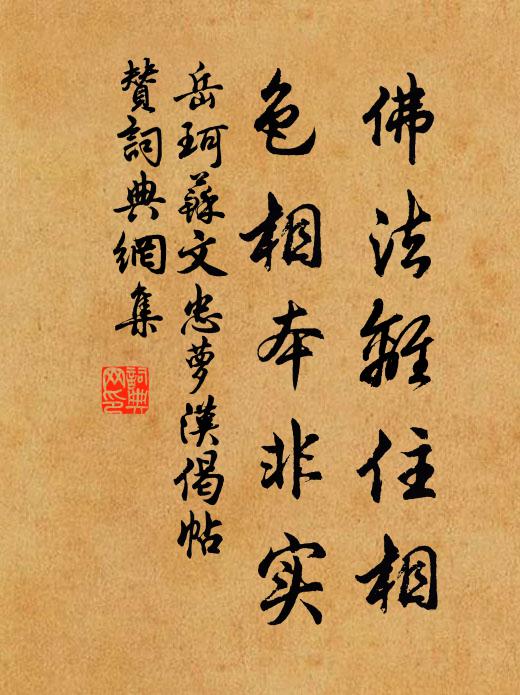 佛法離住相
色相本非实
岳珂蘇文忠夢漢偈帖
贊詞典網集
詞典网印